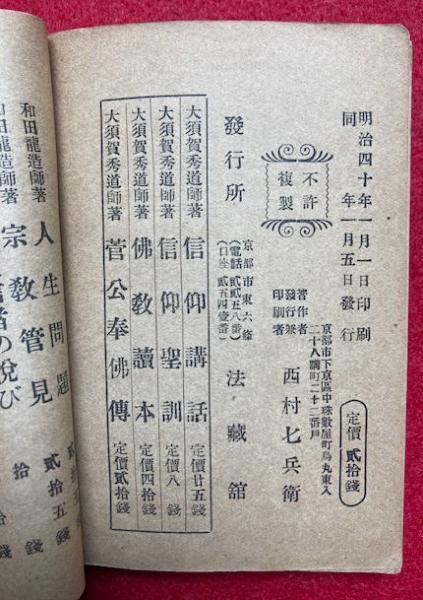 明治四十年一月一日印刷
同　　年一月五日發行
定價貳拾錢
不許
複製
京都市下京區中珠數屋町烏丸東入
二十八購町二十二番戶
著作者
發行兼
印刷者
西村七兵衛
發行所
京都市東六條
(電話貳貳五八番)
(口座貳五四壹番)
法藏館
大須賀秀道師著 信仰講話 定價廿五錢
大須賀秀道師著 信仰聖訓 定價八錢
大須賀秀道師著 佛敎讀本 定價四拾錢
大須賀秀道師著 菅公奉佛傳 定價貳拾錢
和田龍造師著 人生問題 貳拾五錢
和田龍造師著 宗敎管見 貳拾五錢
者の悅び 拾錢